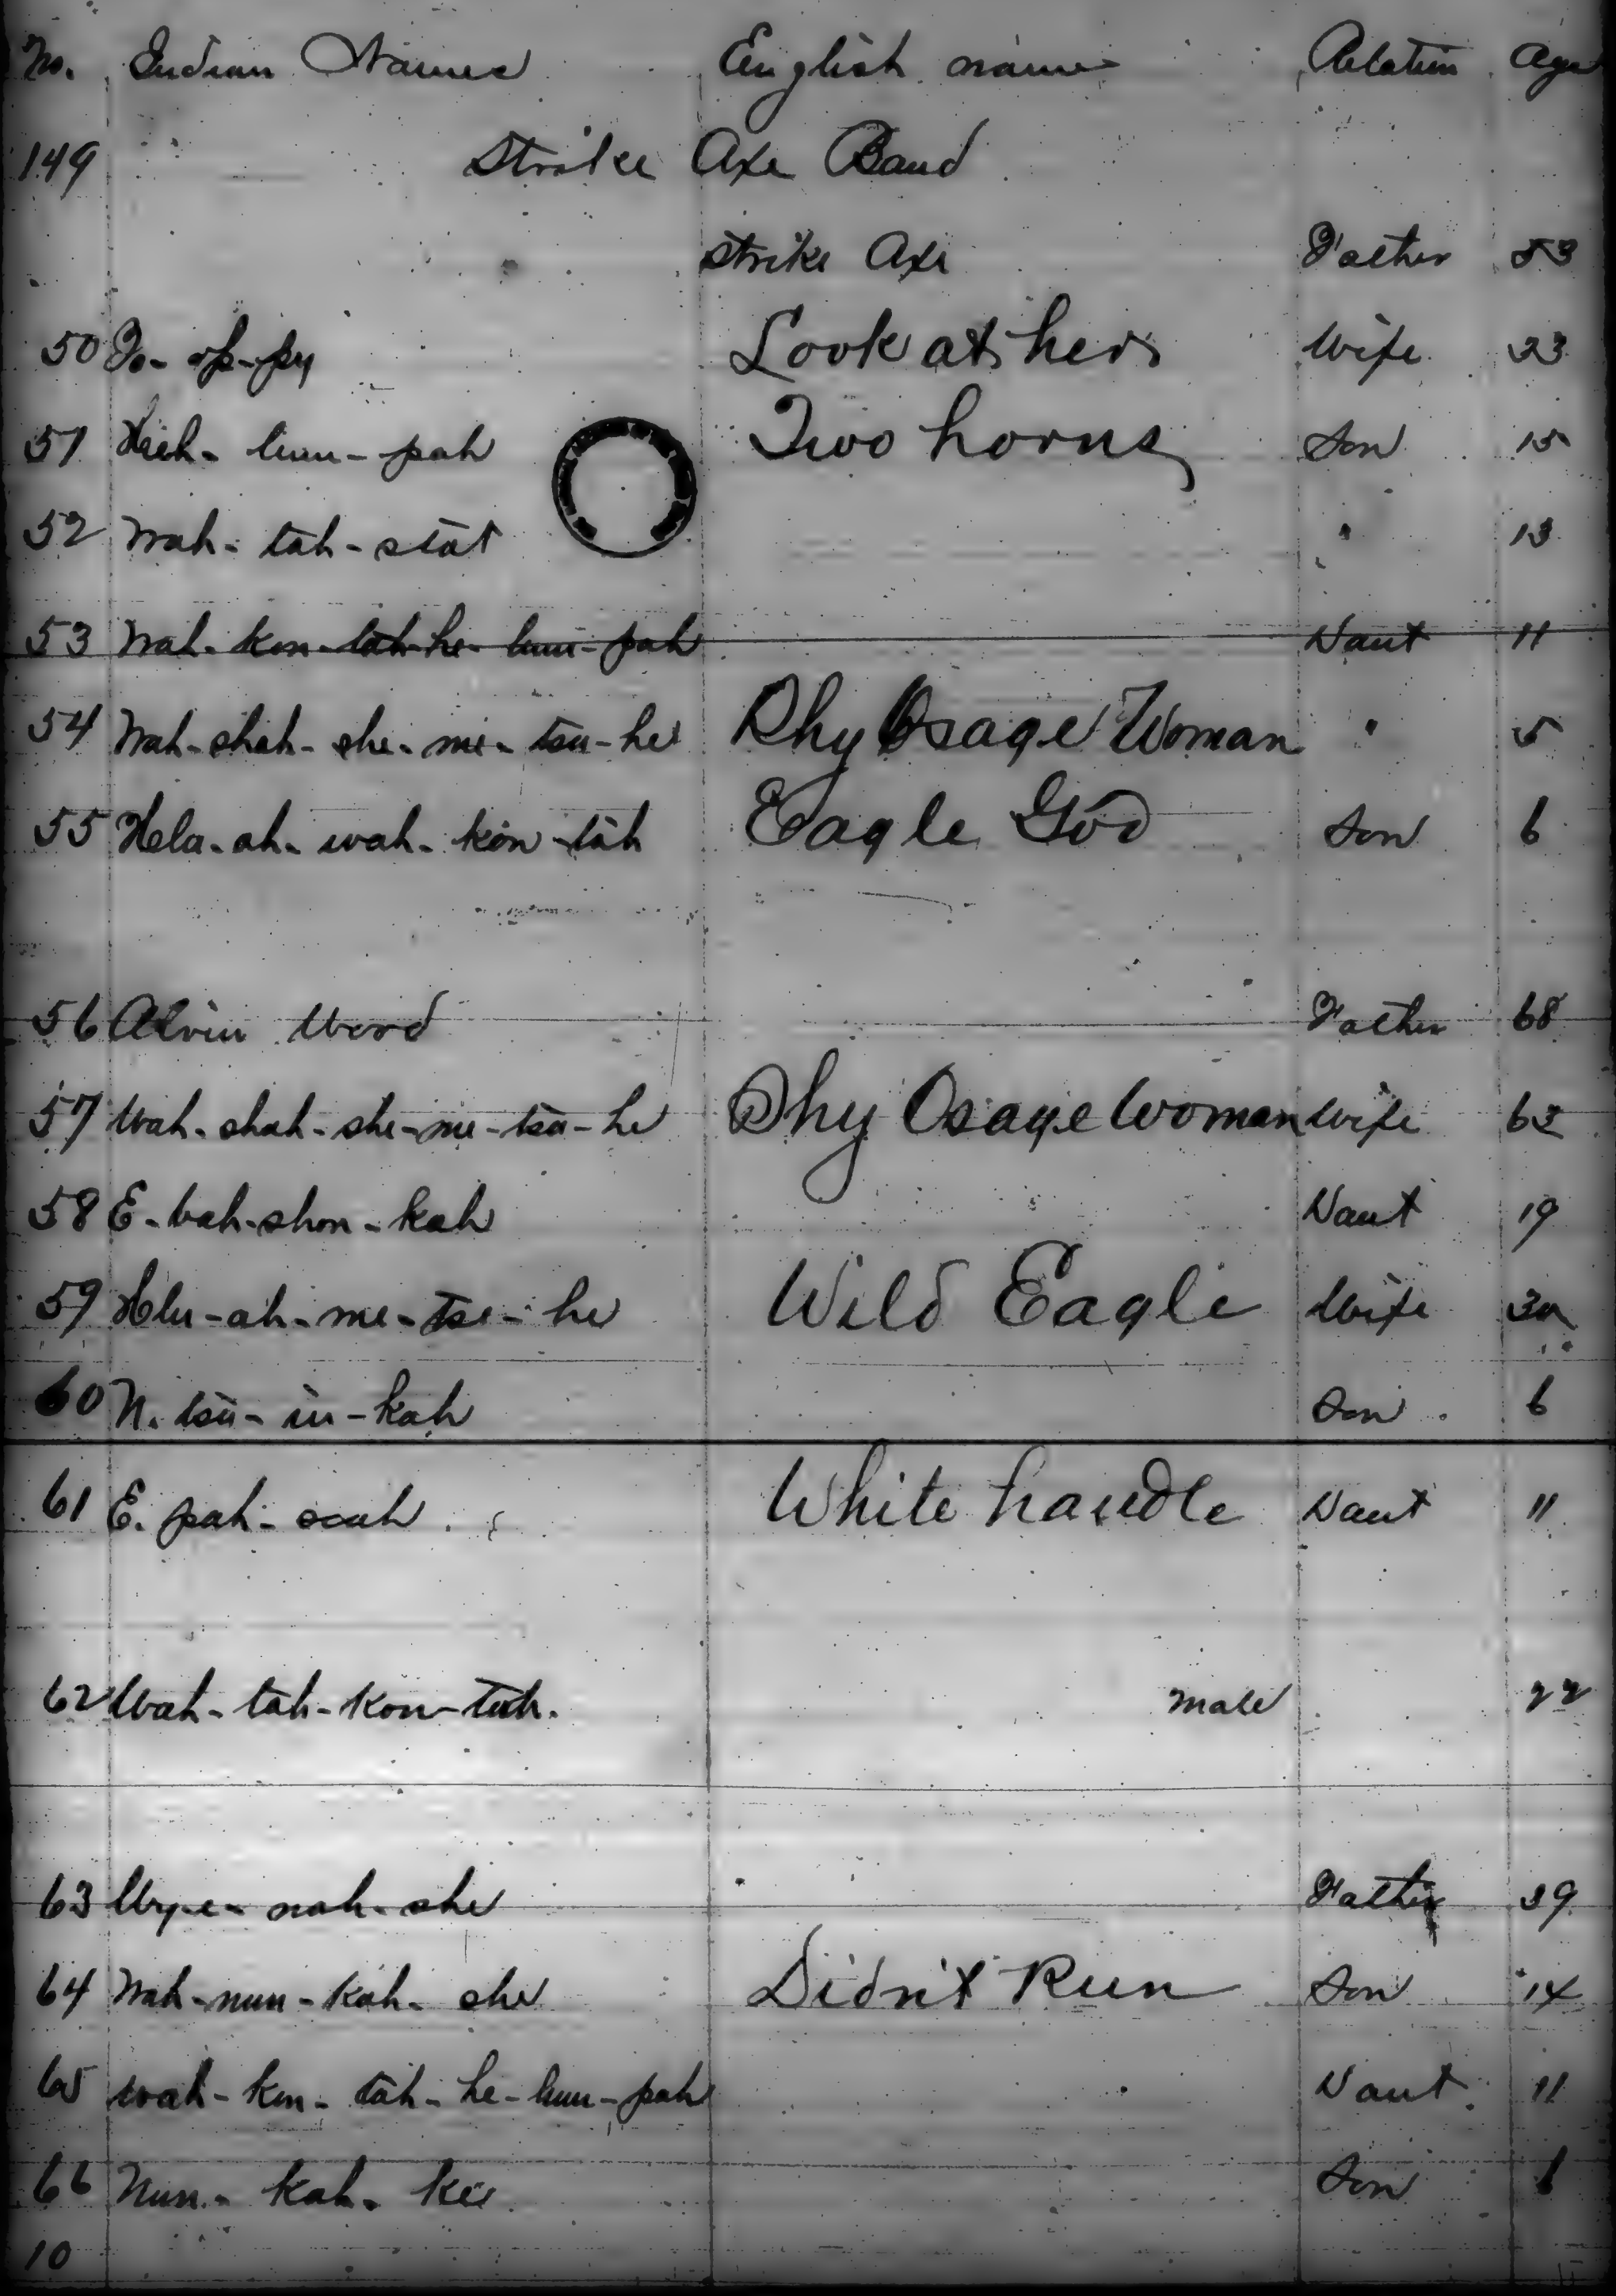 No. Indian Names English name Relation Age
149 Strike Axe Band
Strike Axe Father 53
50 Look at her Wife 33
51 Heh-lum-pah Two horns Son 15
52 Wah-tah-stat " 13
53 Wah-kon-tah-he-lum-pah Daut 11
54 Wah-shah-she-me-tsu-he Rhy Osage Woman " 5
55 Hela-ah-wah-kon-tah Eagle God Son 6
56 Alvin Word Father 68
57 Wah-shah-she-me-tsa-he Shy Osage Woman Wife 63
58 E-bah-shon-kah Daut 19
59 Hlu-ah-me-tse-he Wild Eagle Wife
60 N. tsu-in-kah Son 6
61 E. pah-scah White handle Daut 11
62 Wah-tah-kon-tah. male 22
63 nah-she Father 39
64 Wah-nun-kah-she Didn't Run Son 14
65 Wah-kon-tah-he-lum-pah Daut. 11
66 Nun-kah-ke Son 6
10